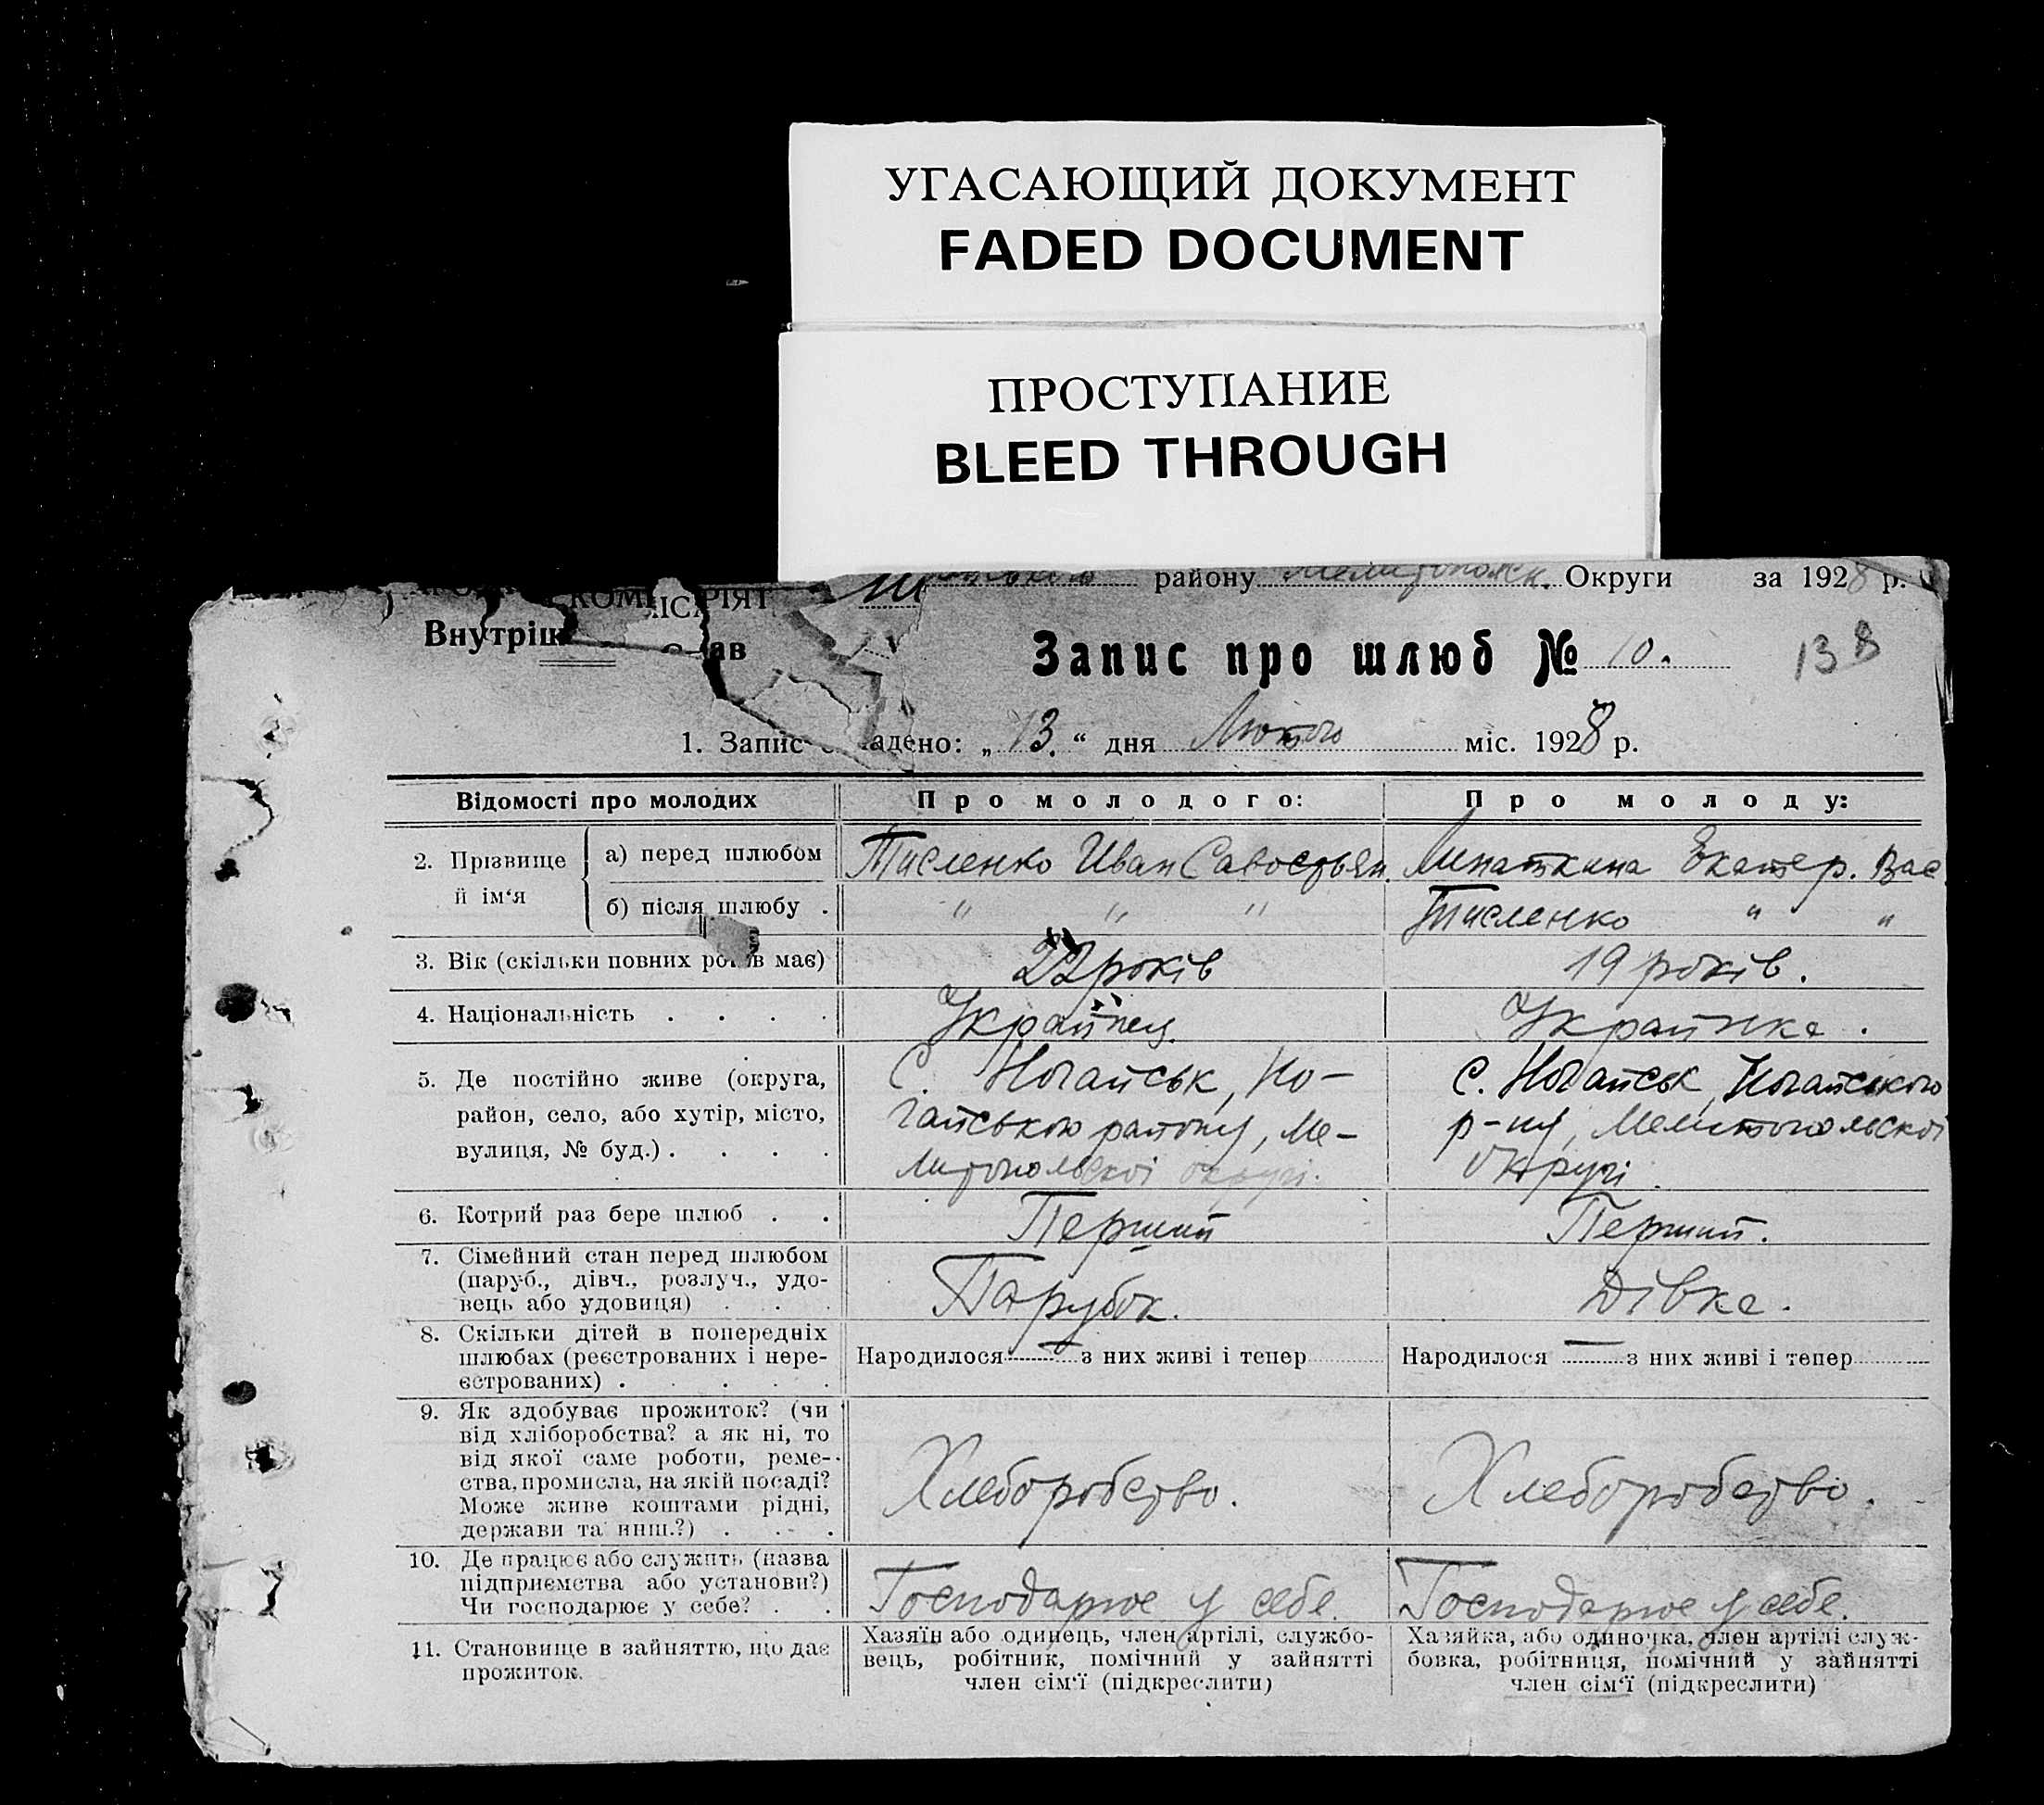 УГАСАЮЩИЙ ДОКУМЕНТ
FADED DOCUMENT
ПРОСТУПАНИЕ
BLEED THROUGH
району Мелитопольск. Округи за 1928 р.
КОМІСАРІЯТ
Внутріш ав
Запис про шлюб № 10. 13 8
1. Запис складено: „ 13. “ дня Лютого міс. 1928 р.
Відомості про молодих Про молодого: Про молоду:
2. Прізвище й ім‘я а) перед шлюбом Тисленко Иван Савостьян. Липаткина Екатер. Вас
б) після шлюбу . " " " Тисленко " "
3. Вік (скільки повних років має) 22 років 19 років.
4. Національність . . . . Українец. Українка.
5. Де постійно живе (округа, С. Ногайськ, Но- с. Ногайськ, Ногайського
район, село, або хутір, місто, гайського району, Ме- р-ну, Мелитопольскоі
вулиця, № буд.) . . . . литопольскоі округі. округі.
6. Котрий раз бере шлюб . . Перший Перший.
7. Сімейний стан перед шлюбом
(паруб., дівч., розлуч., удо-
вець або удовиця) . . . Парубок. Дівка.
8. Скільки дітей в попередніх
шлюбах (реєстрованих і нере- Народилося — з них живі і тепер Народилося — з них живі і тепер
єстрованих) . . . . .
9. Як здобуває прожиток? (чи
від хліборобства? а як ні, то
від якої саме роботи, реме-
ства, промисла, на якій посаді? Хлеборобство. Хлеборобство.
Може живе коштами рідні,
держави та инш.?) . . . .
10. Де працює або служить (назва
підприємства або установи?) Господарює у себе. Господарює у себе.
Чи господарює у себе? . .
11. Становище в зайняттю, що дає Хазяїн або одинець, член артілі, службо- Хазяйка, або одиночка, член артілі служ-
прожиток. вець, робітник, помічний у зайнятті бовка, робітниця, помічний у зайнятті
член сім‘ї (підкреслити) член сім‘ї (підкреслити)